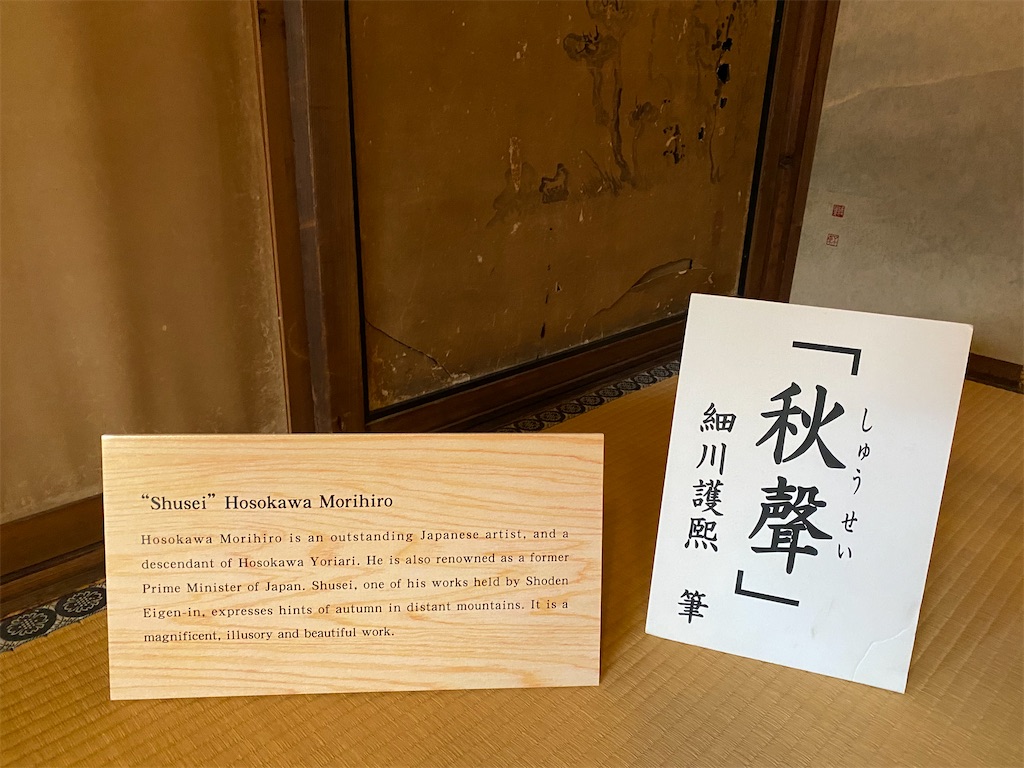 “Shusei” Hosokawa Morihiro
Hosokawa Morihiro is an outstanding Japanese artist, and a
descendant of Hosokawa Yoriari. He is also renowned as a former
Prime Minister of Japan. Shusei, one of his works held by Shoden
Eigen-in, expresses hints of autumn in distant mountains. It is a
magnificent, illusory and beautiful work.
しゅうせい
「秋聲」
細川護熙 筆